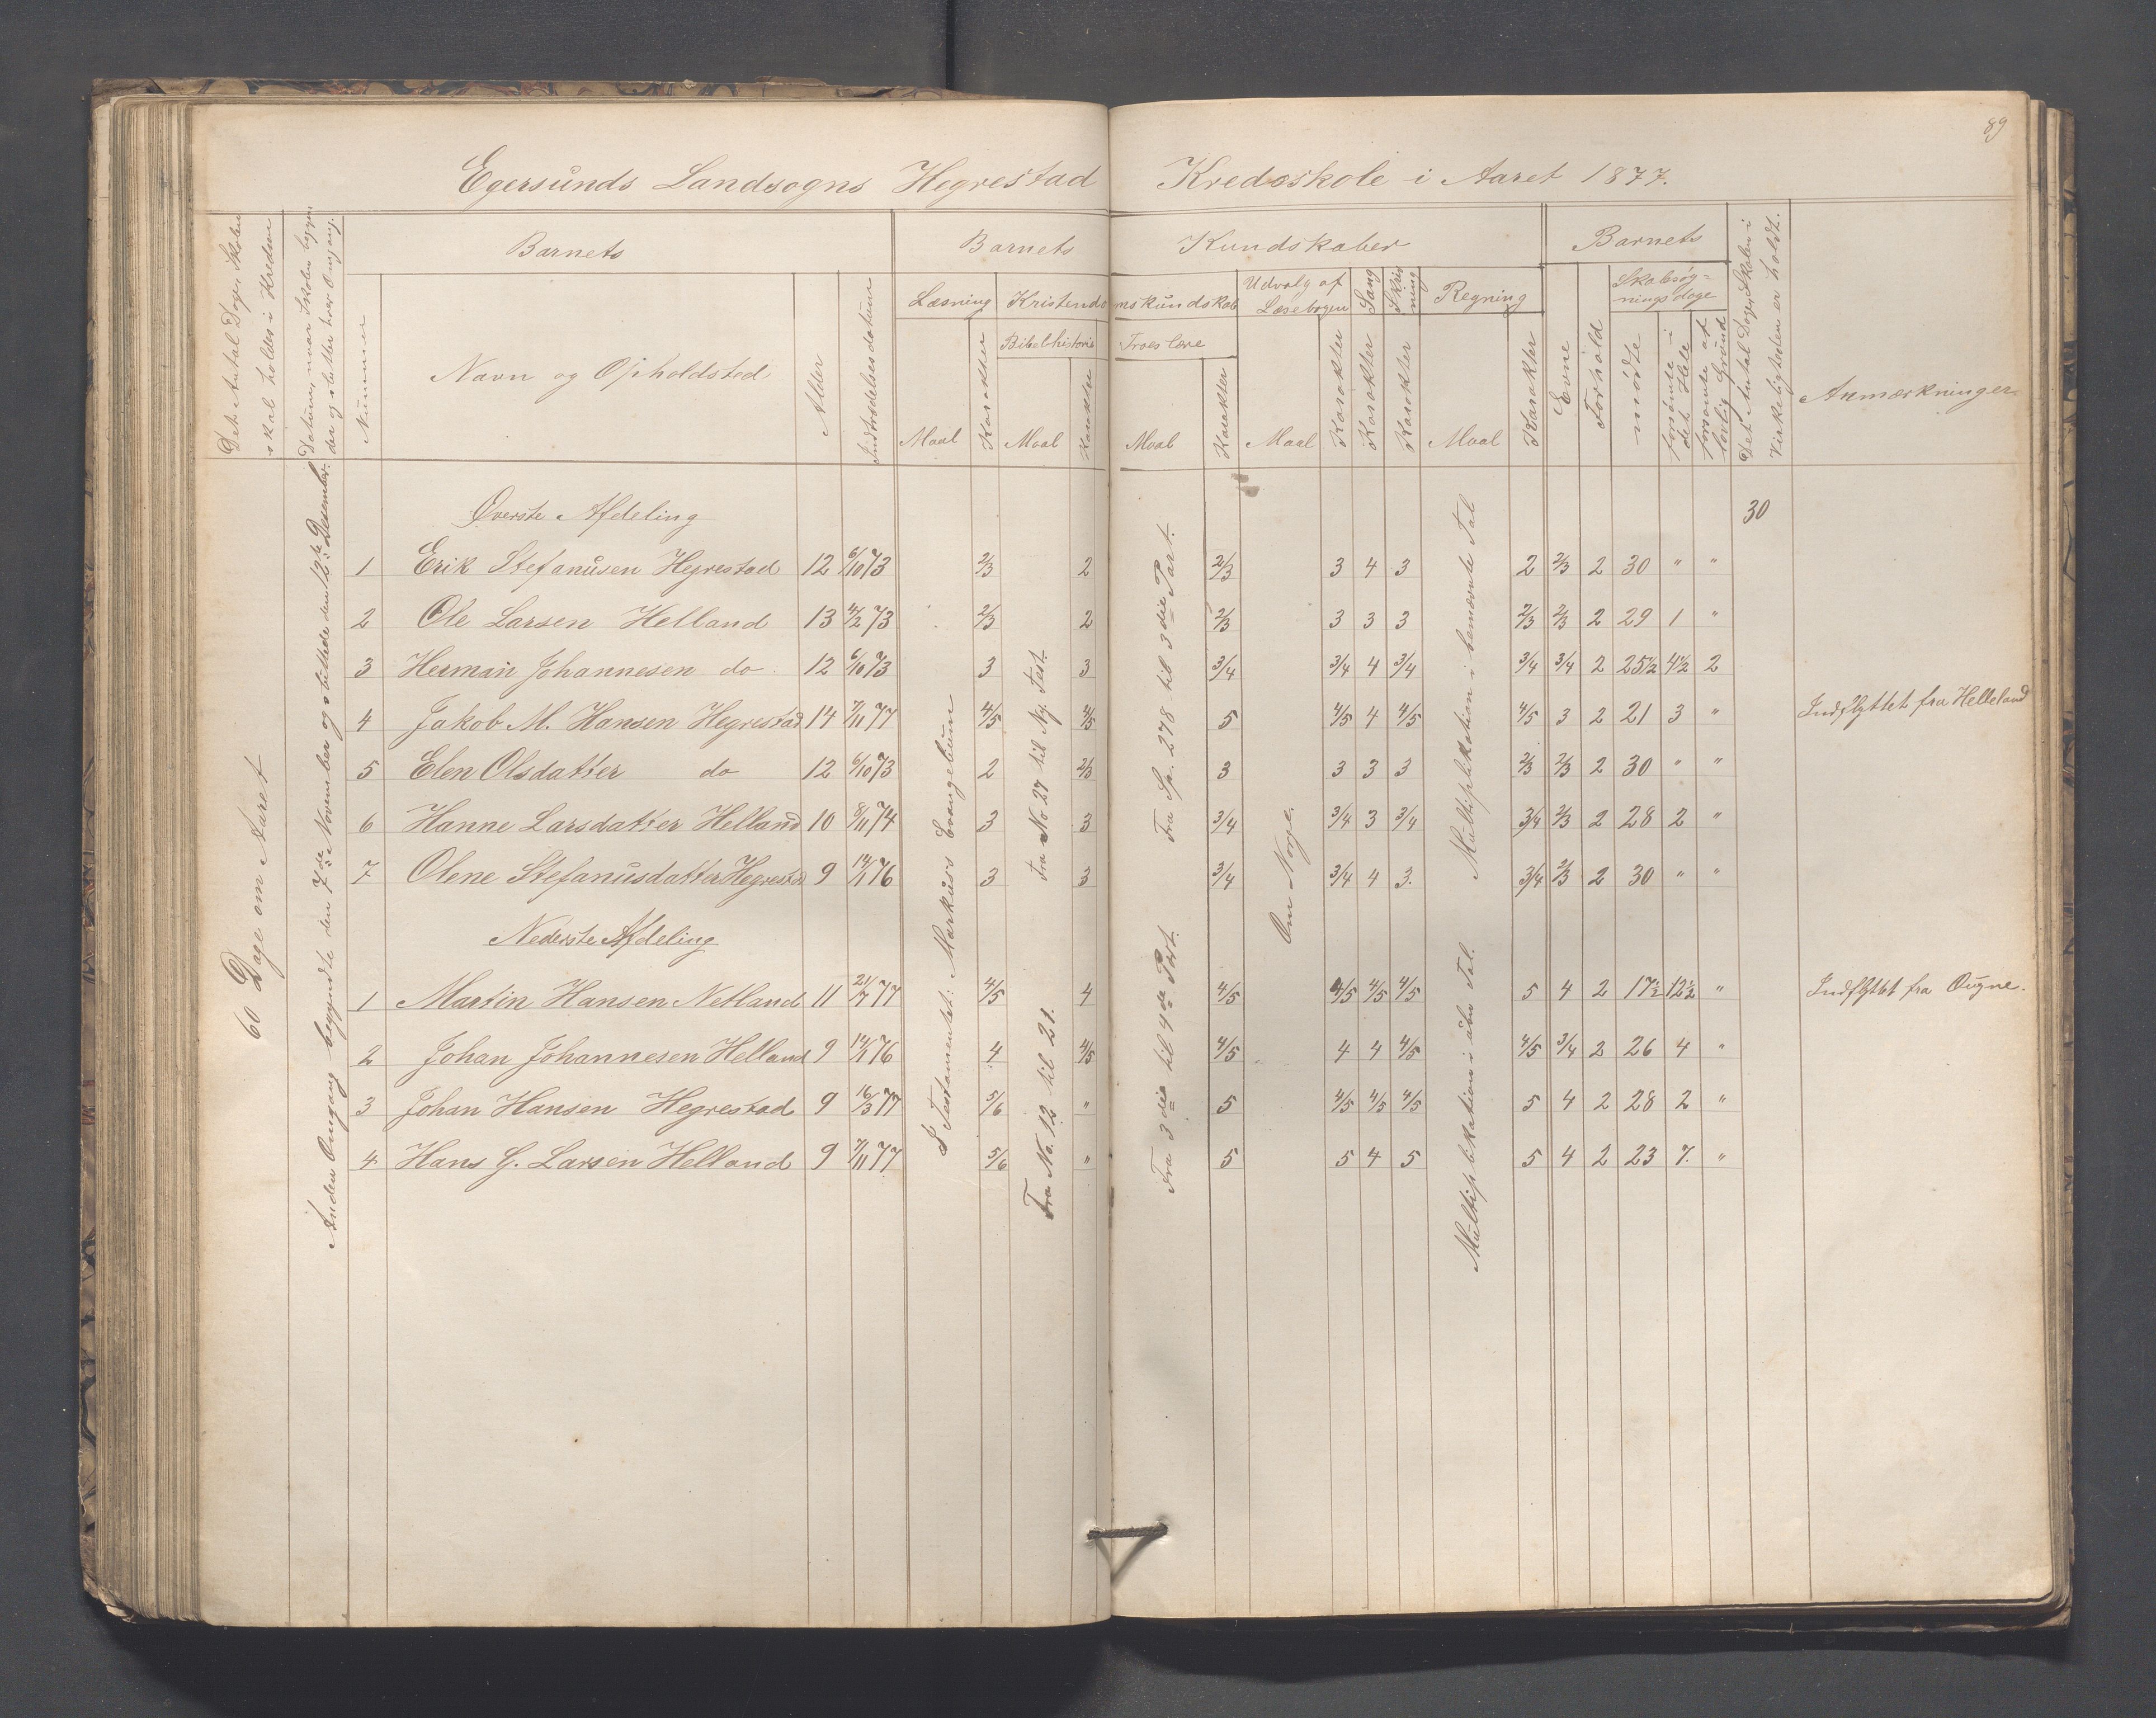 89
Egersunds Landsogns Hegrestad Kredsskole i Aaret 1877.
Det Antal Dage Skolen skal holdes i Kredsen
Datum, naar Skolen begynder og slutter hver Omgang.
Barnets
Barnets Kundskaber
Barnets
Det Antal Dage Skolen i Virkeligheden er holdt.
Anmærkninger
Nummer
Navn og Opholdsted
Alder
Indtrædelsesdatum
Læsning
Kristendomskundskab
Udvalg af Læsebogen
Sang
Skrivning
Regning
Evne
Forhold
Skolesøgningsdage
Bibelhistorie
Troeslære
mødte
forsømte i det Hele
forsømte af lovlig Grund
Maal Karakter Maal Karakter Maal Karakter Maal Karakter Karakter Karakter Maal Karakter
60 Dage om Aaret
Anden Omgang begyndte den 7de November og sluttede den 12te Desember.
I Testamentet: Markus's Evangelium
Fra No 27 til Ny. Test.
Fra No. 12 til 21.
Fra Sp. 278 til 3die Part.
Fra 3die til 4de Part.
Om Norge.
Multiplikation i benævnte Tal
Multiplikation i ubn. Tal.
Øverste Afdeling
30
1 Erik Stefanusen Hegrestad 12 6/10 73 2/3 2 2/3 3 4 3 2 2/3 2 30 " "
2 Ole Larsen Helland 13 4/2 73 2/3 2 2/3 3 3 3 2/3 2/3 2 29 1 "
3 Herman Johannesen do 12 6/10 73 3 3 3/4 3/4 4 3/4 3/4 3/4 2 25 1/2 4 1/2 2
4 Jakob M. Hansen Hegrestad 14 7/11 77 4/5 4/5 5 4/5 4 4/5 4/5 3 2 21 3 " Indflyttet fra Helleland
5 Elen Olsdatter do 12 6/10 73 2 2/3 3 3 3 3 2/3 2/3 2 30 " "
6 Hanne Larsdatter Helland 10 8/11 74 3 3 3/4 3/4 3 3/4 3/4 2/3 2 28 2 "
7 Olene Stefanusdatter Hegrestad 9 14/1 76 3 3 3/4 3/4 4 3. 3/4 2/3 2 30 " "
Nederste Afdeling
1 Martin Hansen Netland 11 21/7 77 4/5 4 4/5 4/5 4/5 4/5 5 4 2 17 1/2 12 1/2 " Indflyttet fra Ougne.
2 Johan Johannesen Helland 9 14/1 76 4 4/5 4/5 4 4 4/5 4/5 3/4 2 26 4 "
3 Johan Hansen Hegrestad 9 16/3 77 5/6 " 5 4/5 4/5 4/5 5 4 2 28 2 "
4 Hans G. Larsen Helland 9 7/11 77 5/6 " 5 5 4 5 5 4 2 23 7. "